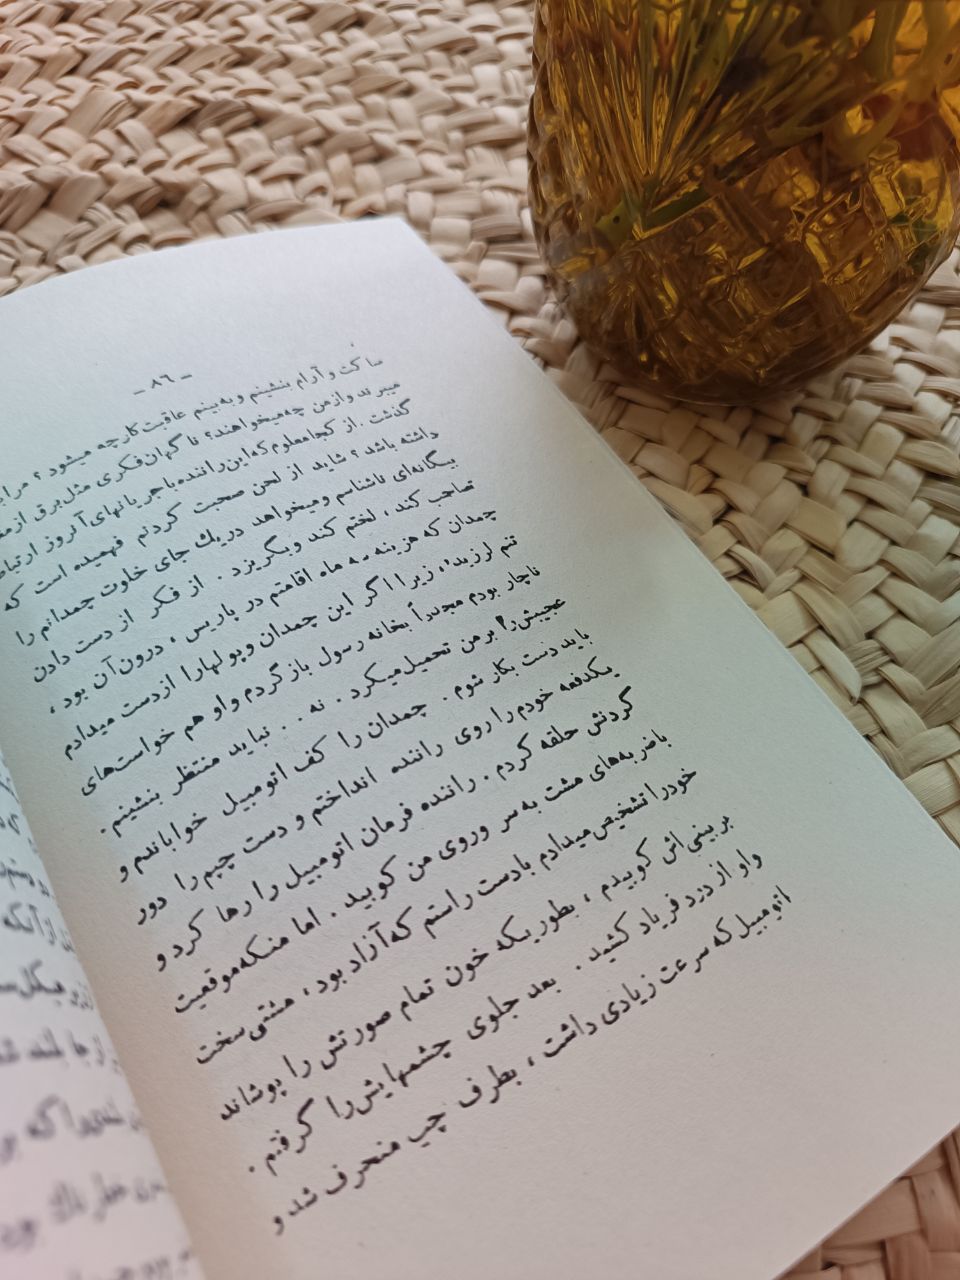 – ٨٦ –
ساکت و آرام بنشینم و به‌بینم عاقبت کار چه میشود ؟ مرا
میبرند و از من چه میخواهند؟ ناگهان فکری مثل برق از
گذشت . از کجا معلوم که این راننده با جریانهای آنروز
داشته باشد ؟ شاید از لحن صحبت کردنم فهمیده است که
بیگانه‌ای ناشناس و میخواهد در یك جای خلوت چمدانم را
تصاحب کند ، لختم کند و بگریزد . از فکر از دست دادن
چمدان که هزینه سه ماه اقامتم در پاریس ، درون آن بود ،
تنم لرزید، زیرا اگر این چمدان و پولها را از دست میدادم
ناچار بودم مجدداً بخانه رسول بازگردم و او هم خواست‌های
عجیبش را بر من تحمیل میکرد . نه . . نباید منتظر بنشینم .
باید دست بکار شوم . چمدان را کف اتومبیل خواباندم و
یکدفعه خودم را روی راننده انداختم و دست چپم را دور
گردنش حلقه کردم . راننده فرمان اتومبیل را رها کرد و
با ضربه‌های مشت به سر و روی من کوبید . اما منکه موقعیت
خود را تشخیص میدادم با دست راستم که آزاد بود ، مشتی سخت
بر بینی‌اش کوبیدم ، بطوریکه خون تمام صورتش را پوشاند
و او از درد فریاد کشید . بعد جلوی چشمهایش را گرفتم .
اتومبیل که سرعت زیادی داشت ، بطرف چپ منحرف شد و